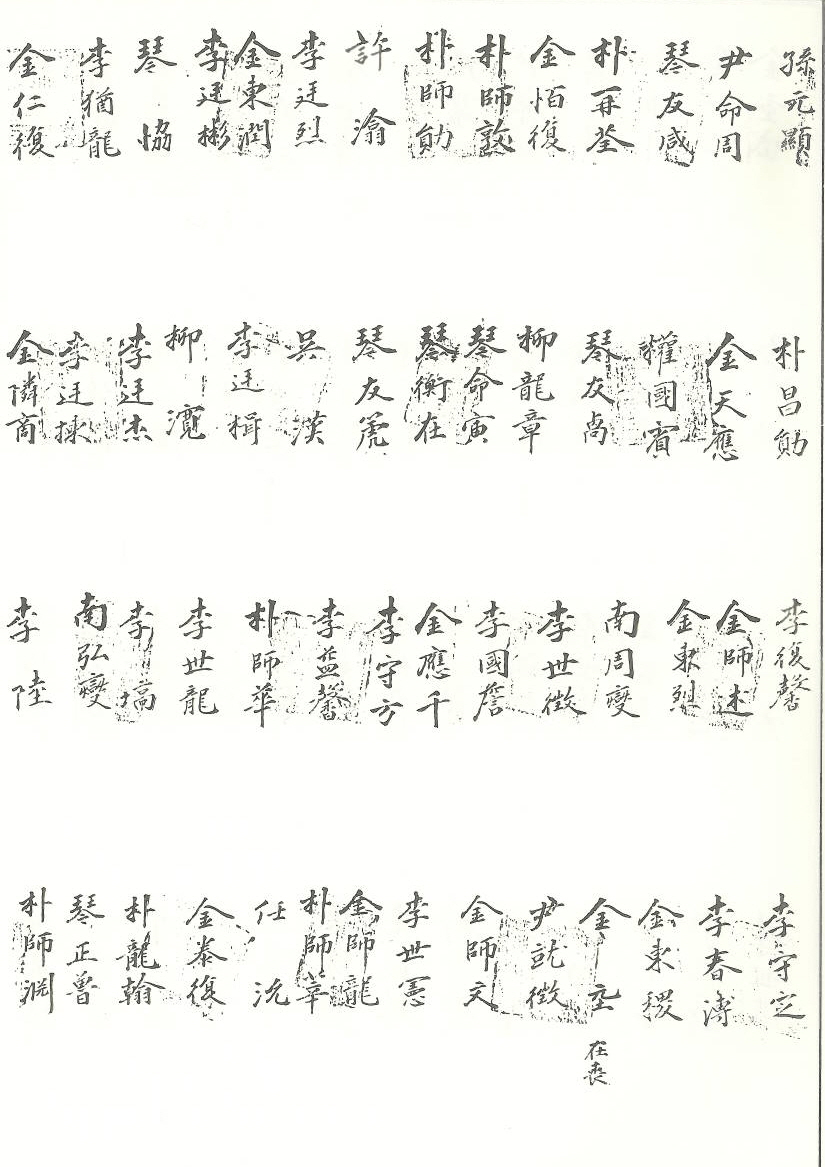 孫元顯
尹命周
琴友咸
朴再荃
金佰復
朴師敦
朴師勛
許 瀹
李廷烈
金東潤
李廷彬
琴 恊
李猶龍
金仁復
朴昌勛
金天應
權國賓
琴友尚
柳龍章
琴命寅
琴衡在
琴友虎
吴 漢
李廷楫
柳 㵧
李廷杰
李廷揀
金隣商
李復馨
金師述
金東烈
南周燮
李世徵
李國詹
金應千
李守方
李益馨
朴師華
李世龍
李 墧
南弘燮
李 陸
李守定
李春溥
金東稷
金 㘴
在喪
尹就徵
金師文
李世憲
金師龍
朴師莘
任 沇
金泰復
朴龍翰
琴正魯
朴師渊